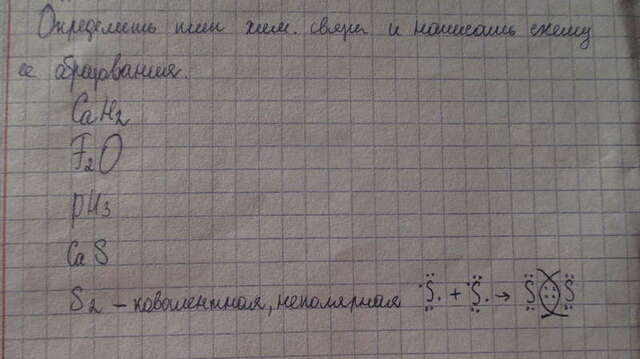 Определить тип хим. связи и написать схему
ее образования.
CaH2
F2O
PH3
CaS
S2 – ковалентная, неполярная S + S → S S